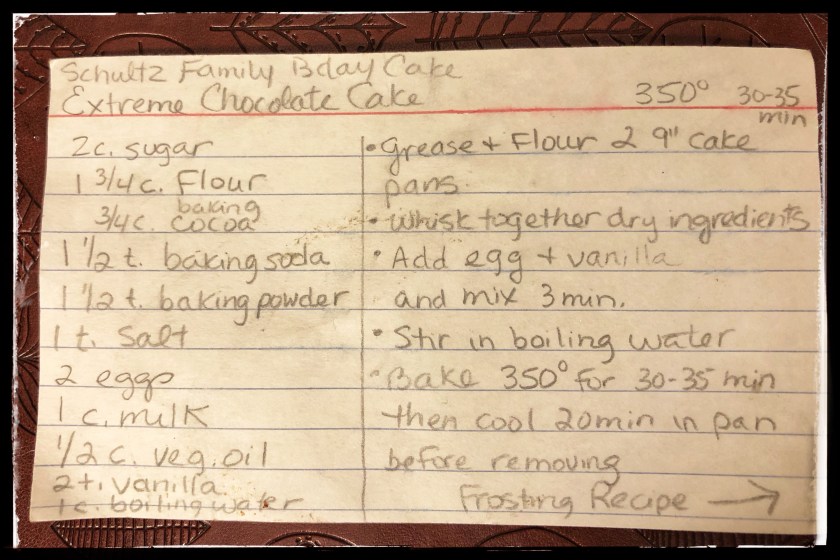 Schultz Family Bday Cake
Extreme Chocolate Cake 350° 30-35 min
2c. sugar
1 3/4 c. Flour
3/4 c. baking cocoa
1 1/2 t. baking soda
1 1/2 t. baking powder
1 t. Salt
2 eggs
1 c. milk
1/2 c. veg. oil
2 t. vanilla
1c. boiling water
• Grease + Flour 2 9" cake
pans.
• Whisk together dry ingredients
• Add egg + vanilla
and mix 3 min.
• Stir in boiling water
• Bake 350° for 30-35 min
then cool 20 min in pan
before removing
Frosting Recipe →